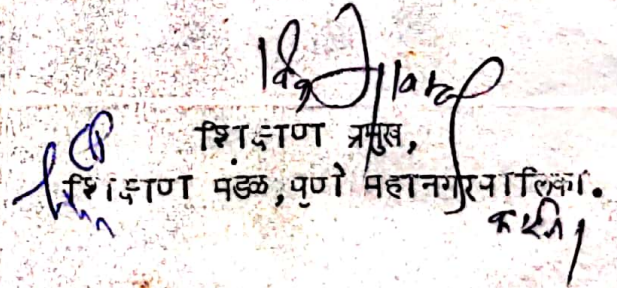 शिक्षण प्रमुख,
शिक्षण मंडळ, पुणे महानगरपालिका.
करिता